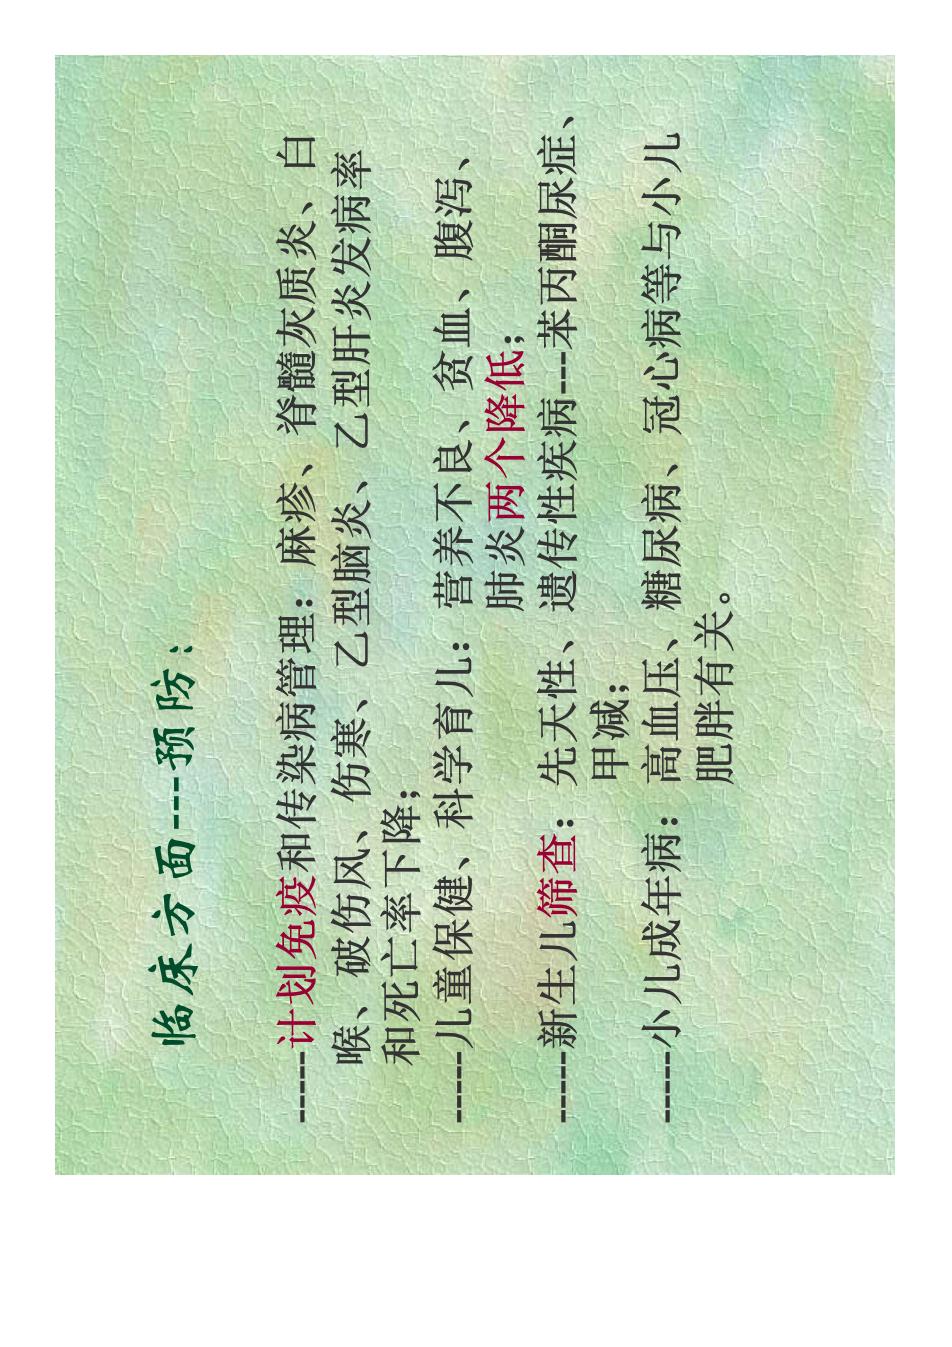 临床方面---预防：
------计划免疫和传染病管理：麻疹、脊髓灰质炎、白
喉、破伤风、伤寒、乙型脑炎、乙型肝炎发病率
和死亡率下降；
------儿童保健、科学育儿：营养不良、贫血、腹泻、
肺炎两个降低；
------新生儿筛查：先天性、遗传性疾病---苯丙酮尿症、
甲减；
------小儿成年病：高血压、糖尿病、冠心病等与小儿
肥胖有关。